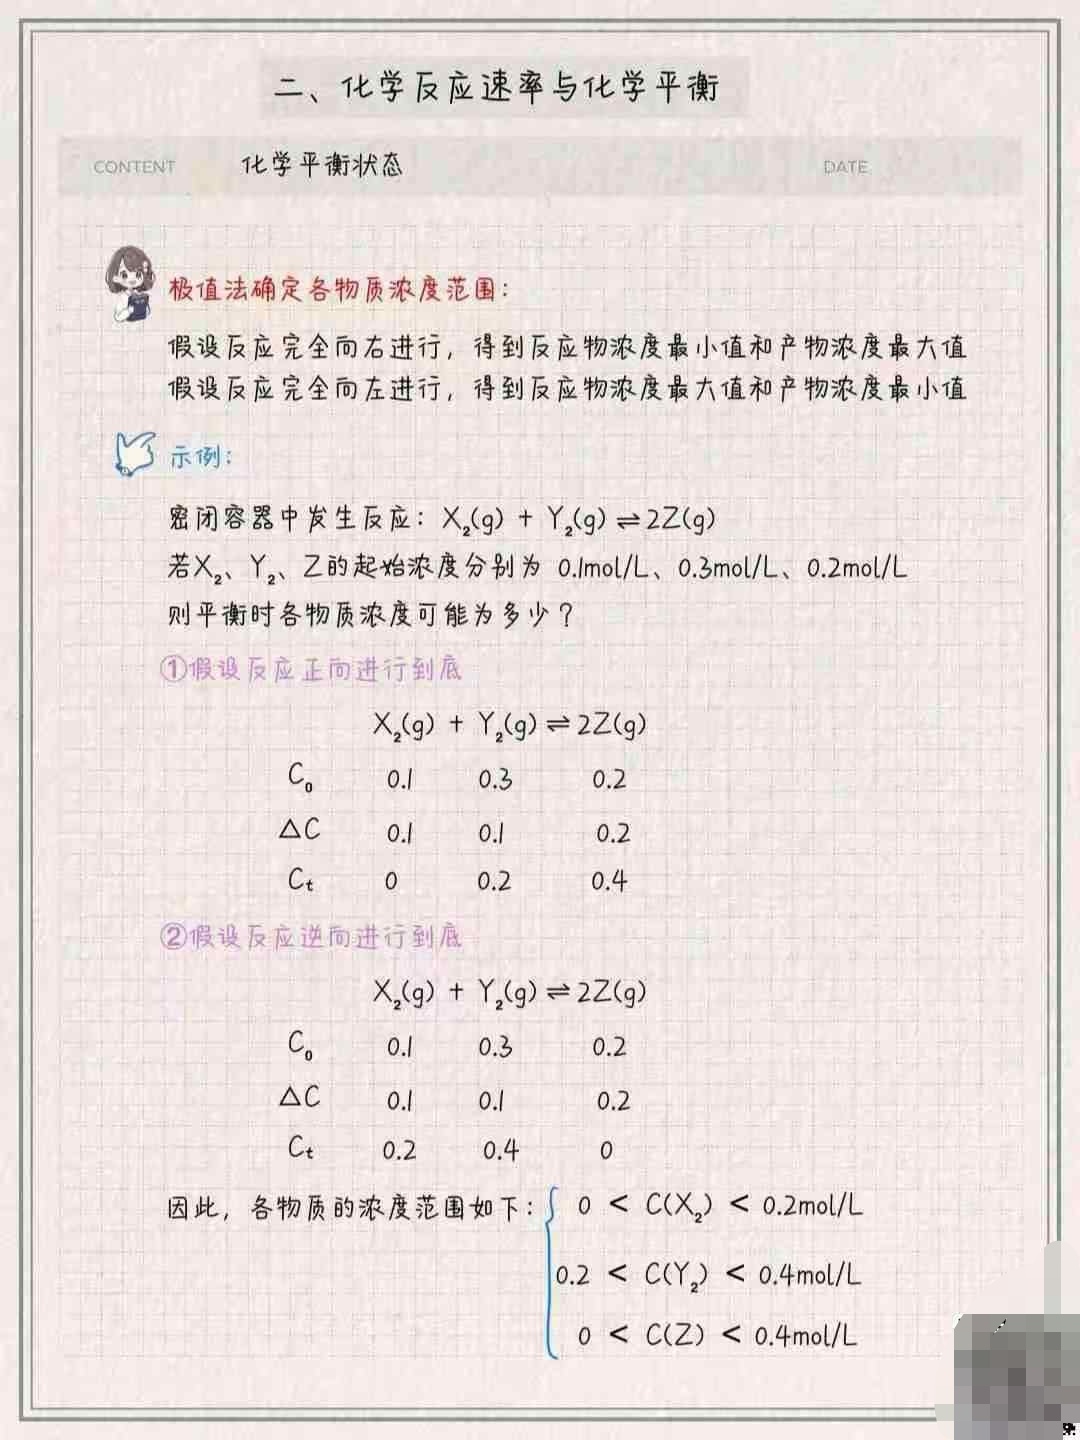 二、化学反应速率与化学平衡
CONTENT 化学平衡状态 DATE
极值法确定各物质浓度范围：
假设反应完全向右进行，得到反应物浓度最小值和产物浓度最大值
假设反应完全向左进行，得到反应物浓度最大值和产物浓度最小值
示例：
密闭容器中发生反应：X₂(g) + Y₂(g) ⇌ 2Z(g)
若X₂、Y₂、Z的起始浓度分别为 0.1mol/L、0.3mol/L、0.2mol/L
则平衡时各物质浓度可能为多少？
①假设反应正向进行到底
X₂(g) + Y₂(g) ⇌ 2Z(g)
C₀ 0.1 0.3 0.2
△C 0.1 0.1 0.2
Cₜ 0 0.2 0.4
②假设反应逆向进行到底
X₂(g) + Y₂(g) ⇌ 2Z(g)
C₀ 0.1 0.3 0.2
△C 0.1 0.1 0.2
Cₜ 0.2 0.4 0
因此，各物质的浓度范围如下： 0 < C(X₂) < 0.2mol/L
0.2 < C(Y₂) < 0.4mol/L
0 < C(Z) < 0.4mol/L